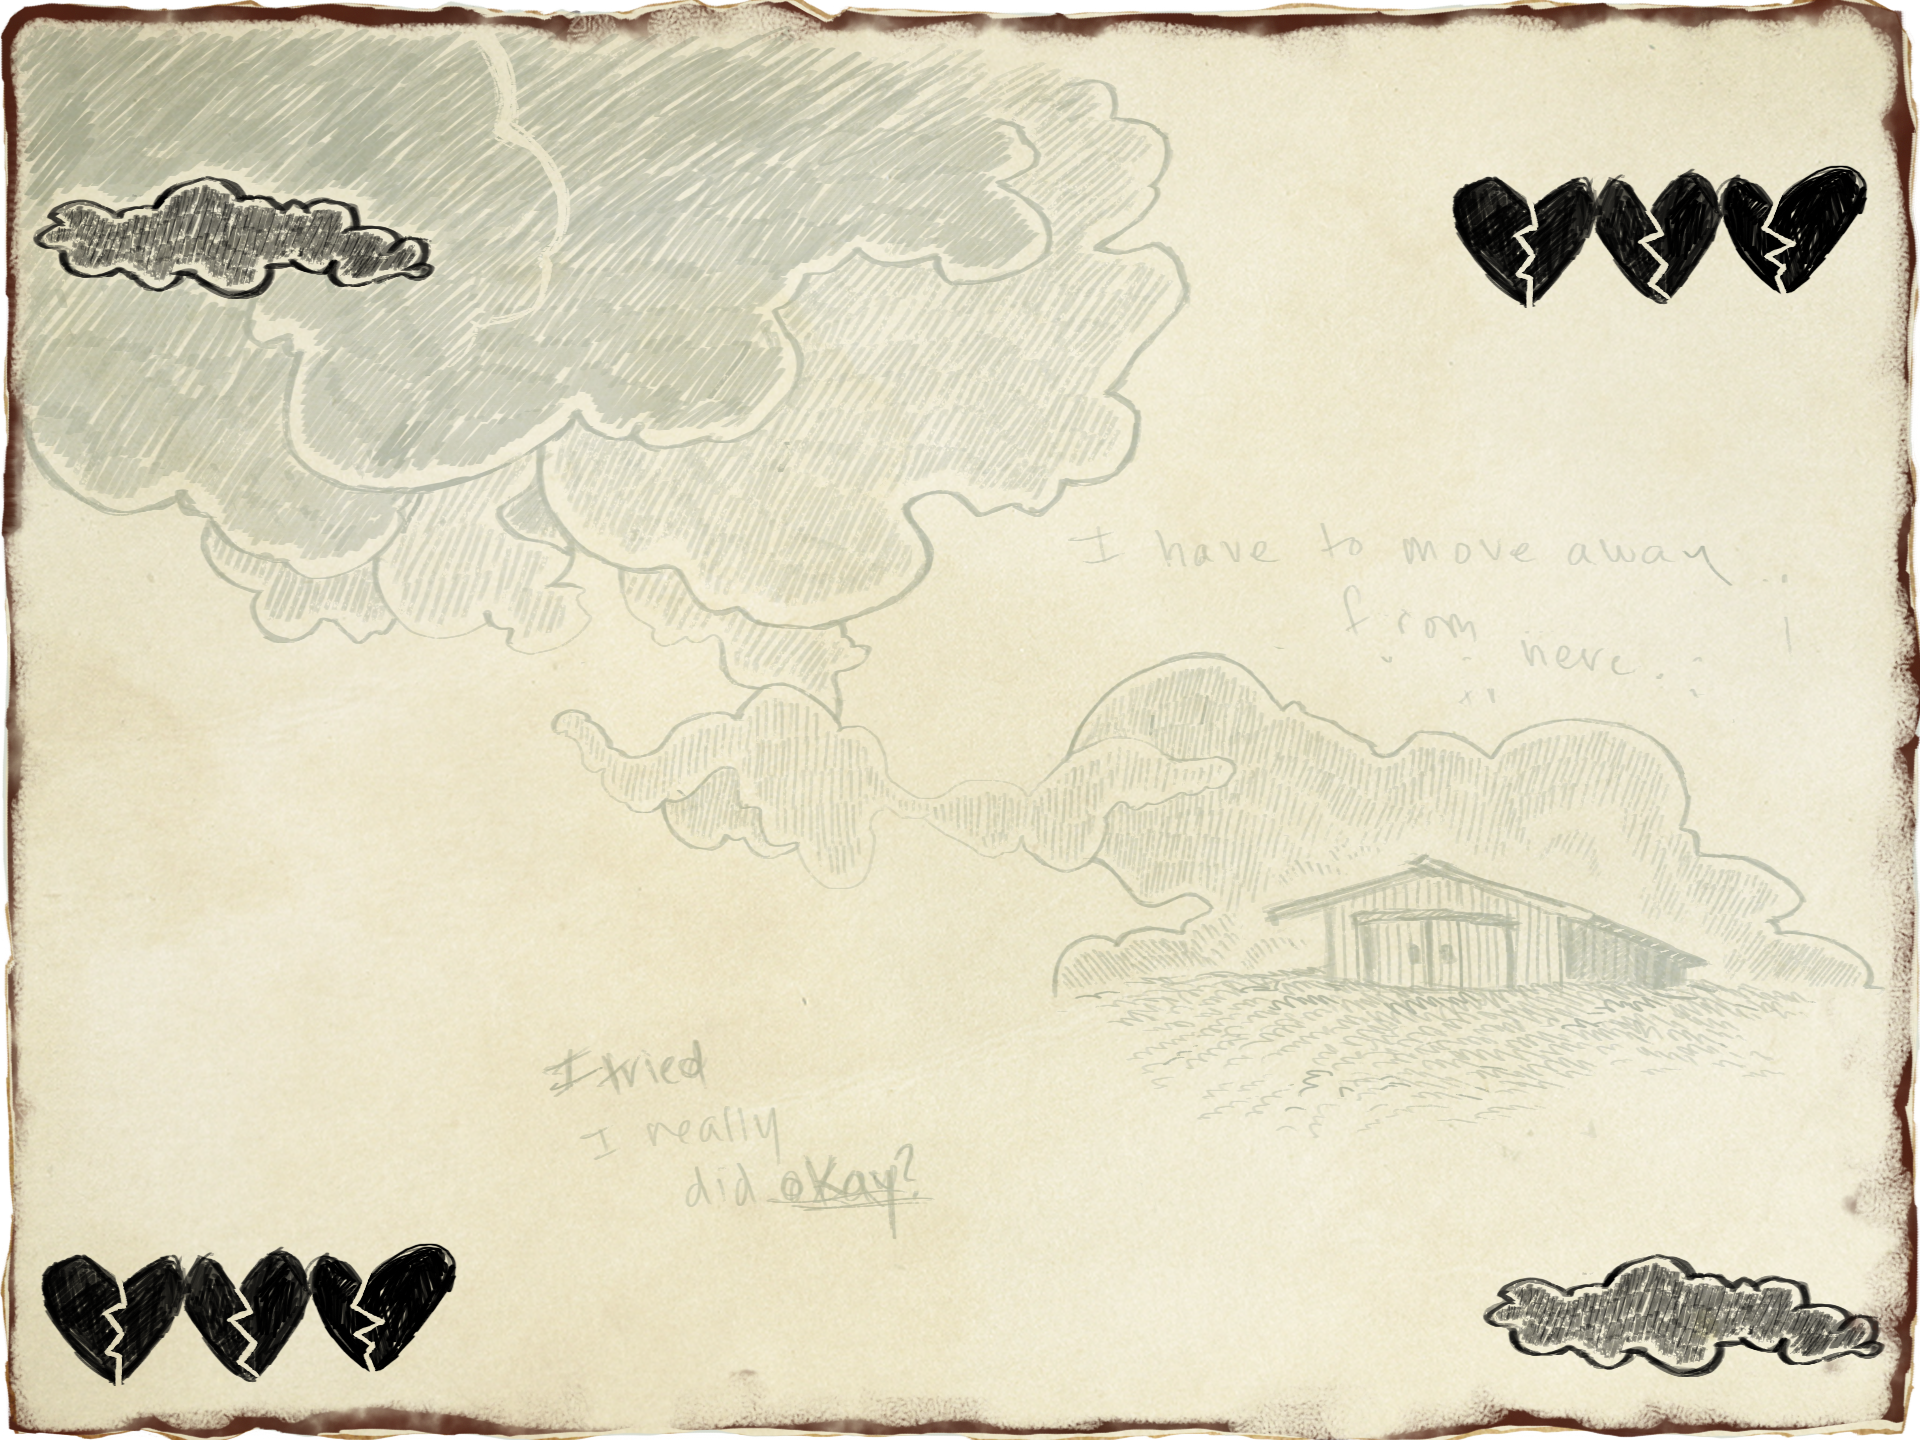 I have to move away
from
here.
I tried
I really
did okay?